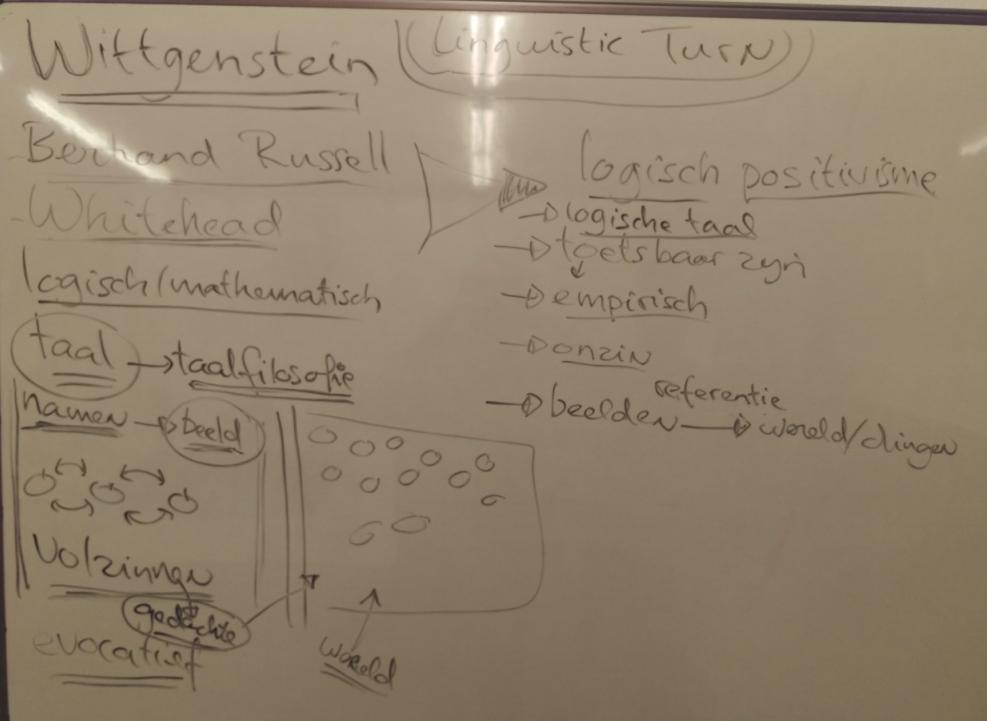 Wittgenstein
(Linguistic Turn)
- Berhand Russell
- Whitehead
logisch/mathematisch
taal → taalfilosofie
namen → beeld
Volzinnen
gedachte
evocatief
wereld
logisch positivisme
→ logische taal
→ toetsbaar zijn
↓
→ empirisch
→ onzin
referentie
→ beelden → wereld/dingen